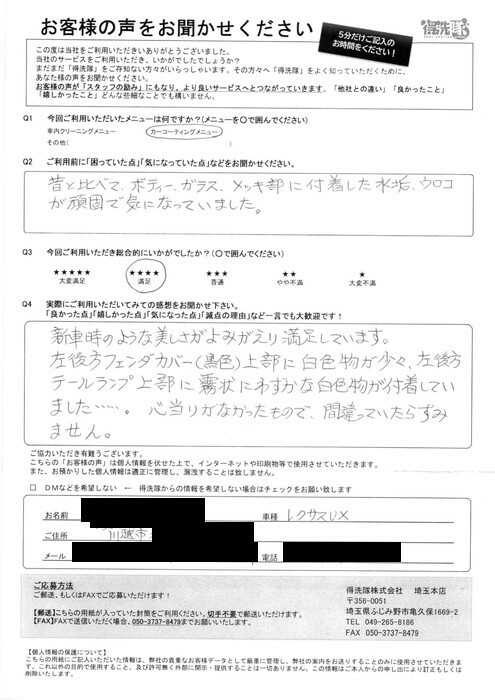 お客様の声をお聞かせください
5分だけご記入の
お時間をください！
得洗隊
この度は当社をご利用いただきいありがとうございました。
当社のサービスをご利用いただき、いかがでしたでしょうか？
まだまだ「得洗隊」をご存知ない方々がいらっしゃいます。その方々へ「得洗隊」をよく知っていただくために、
あなた様の声をお聞かせください。
お客様の声が「スタッフの励み」にもなり、より良いサービスへとつながっていきます。「他社との違い」「良かったこと」
「嬉しかったこと」どんな些細なことでも構いません。
Q1 今回ご利用いただいたメニューは何ですか？(メニューを〇で囲んでください)
車内クリーニングメニュー カーコーティングメニュー
その他(
Q2 ご利用前に「困っていた点」「気になっていた点」などをお聞かせください。
昔と比べて、ボディー、ガラス、メッキ部に付着した水垢、ウロコ
が頑固で気になっていました。
Q3 今回ご利用いただき総合的にいかがでしたか？(〇で囲んでください)
★★★★★ ★★★★ ★★★ ★★ ★
大変満足 満足 普通 やや不満 大変不満
Q4 実際にご利用いただいてみての感想をお聞かせ下さい。
「良かった点」「嬉しかった点」「気になった点」「減点の理由」など一言でも大歓迎です！
新車時のような美しさがよみがえり満足しています。
左後方フェンダカバー(黒色)上部に白色物が少々、左後方
テールランプ上部に霧状にわずかな白色物が付着してい
ました……。心当りがなかったもので、間違っていたらすみ
ません。
ご協力いただき有難うございます。
こちらの「お客様の声」は個人情報を伏せた上で、インターネットや印刷物等で使用させていただきます。
また、お預かりした個人情報は適正に管理し、漏洩することは致しません。
□ DMなどを希望しない ← 得洗隊からの情報を希望しない場合はチェックをお願い致します
お名前 車種 レクサスUX
ご住所 川越市
メール 電話
ご応募方法
ご郵送、もしくはFAXでご応募いただけます！
【郵送】こちらの用紙が入っていた封筒をご利用ください。切手不要で郵送いただけます。
【FAX】FAXで送信いただく場合、050-3737-8479までお願いいたします。
得洗隊株式会社 埼玉本店
〒356-0051
埼玉県ふじみ野市亀久保1669-2
TEL 049-265-8186
FAX 050-3737-8479
【個人情報の保護について】
こちらの用紙にご記入いただいた情報は、弊社の貴重なお客様データとして厳重に管理し、弊社の案内をお送りすることのみに使用させていただきま
す。これ以外の目的で使用すること、及び許可無く外部に開示・提供することは一切ありません。また、いただいた情報はご本人からの申し出により訂正もしくは
削除いたします。